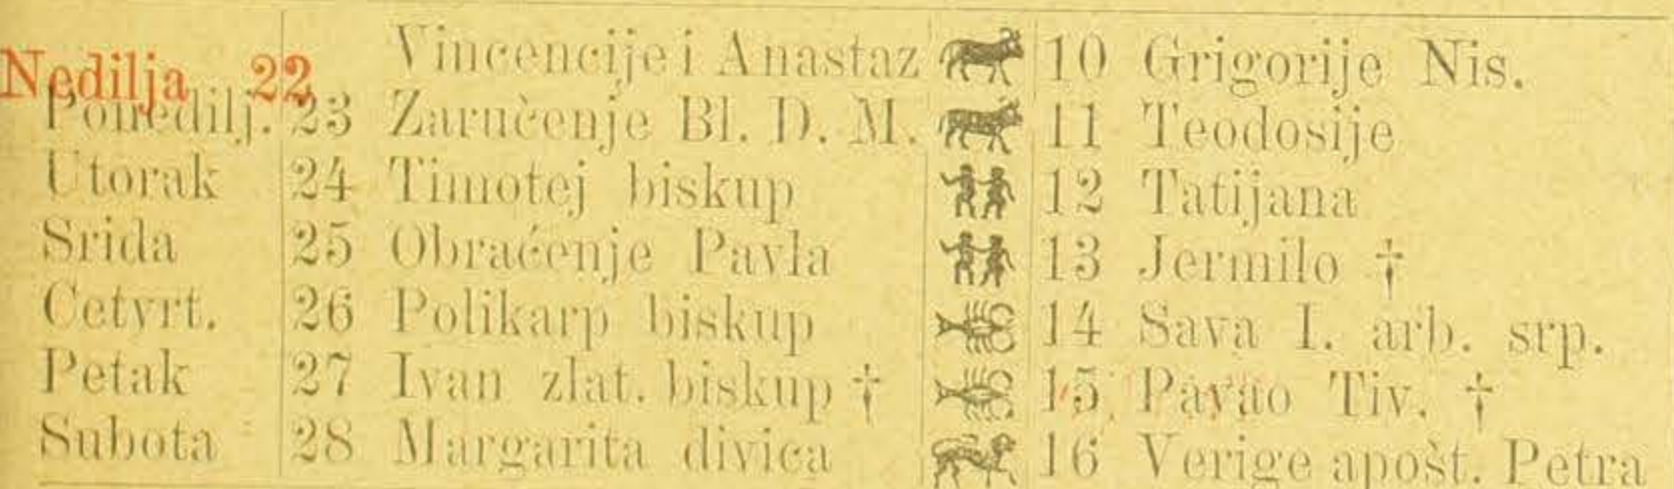 Nedilja 22 Vincencije i Anastaz 10 Grigorije Nis.
Ponedilj. 23 Zaručenje Bl. D. M. 11 Teodosije
Utorak 24 Timotej biskup 12 Tatijana
Srida 25 Obraćenje Pavla 13 Jermilo †
Cetvrt. 26 Polikarp biskup 14 Sava I. arb. srp.
Petak 27 Ivan zlat. biskup † 15 Pavao Tiv. †
Subota 28 Margarita divica 16 Verige apošt. Petra